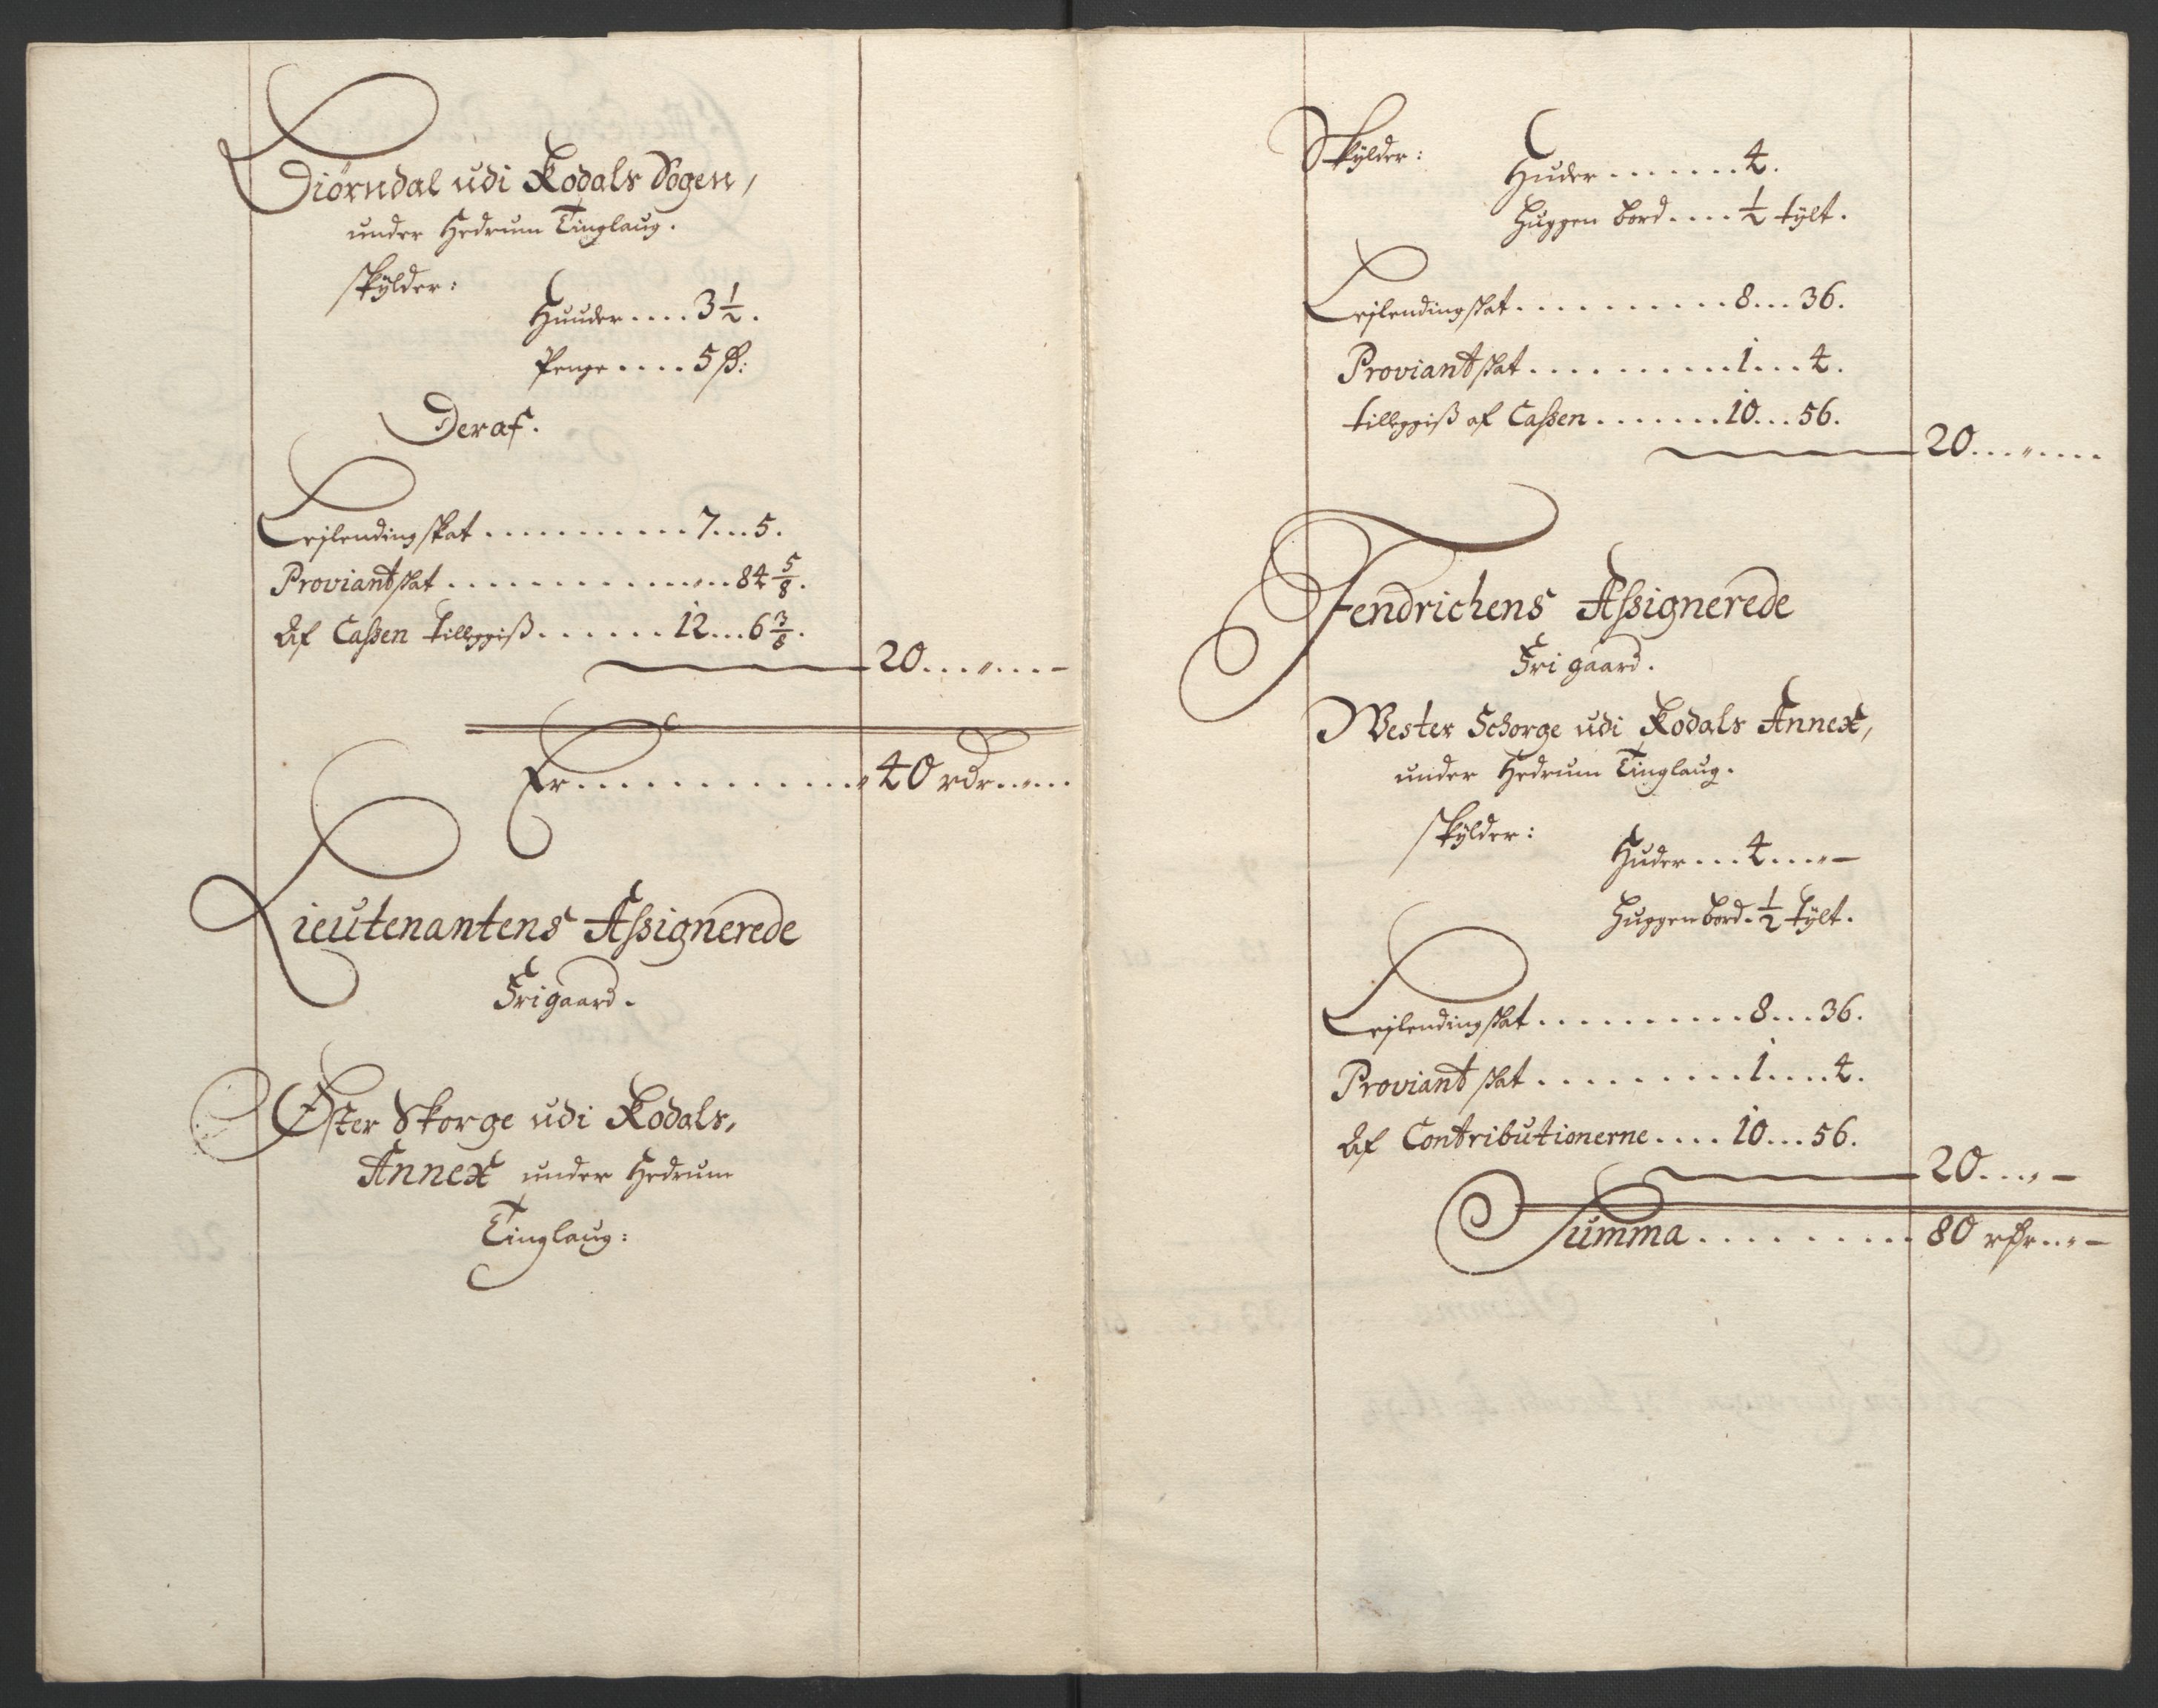 Diörndal udi Kodals Sogen,
under Hedrum Tinglaug.
skÿlder:
Huuder .... 3 1/2.
Penge .... 5 ß:
Deraf.
Leilendingskat .......... 7 ... 5.
Proviantskat .............. „ .. 84 5/8.
Af Cassen Tilleggiß ....... 12 ... 6 3/8.
20 .... „ .... –
Er ............ „ 40 rdr .. „ ...
Lieutenantens Assignerede
Frigaard.
Øster Skorge udi Kodals,
Annex under Hedrum
Tinglaug:
Skÿlder:
Huder ....... 4.
Huggen bord .... 1/2 tÿlt.
Leilendingskat .......... 8 ... 36.
Proviantskat .......... 1 ... 4.
tilleggiß af Cassen ....... 10 ... 56.
20 ... „ ....
Fendrichens Assignerede
Fri gaard.
Wester Schorge udi Kodals Annex,
under Hedrum Tinglaug.
skÿlder:
Huder ... 4 ... „ –
Huggen bord . 1/2 Tÿlt.
Leilendingskat .......... 8 ... 36.
Proviant skat .......... 1 .... 4.
Af Contributionerne .... 10 ... 56.
20 ... „ –
Summa ......... 80 rdr .. „ –